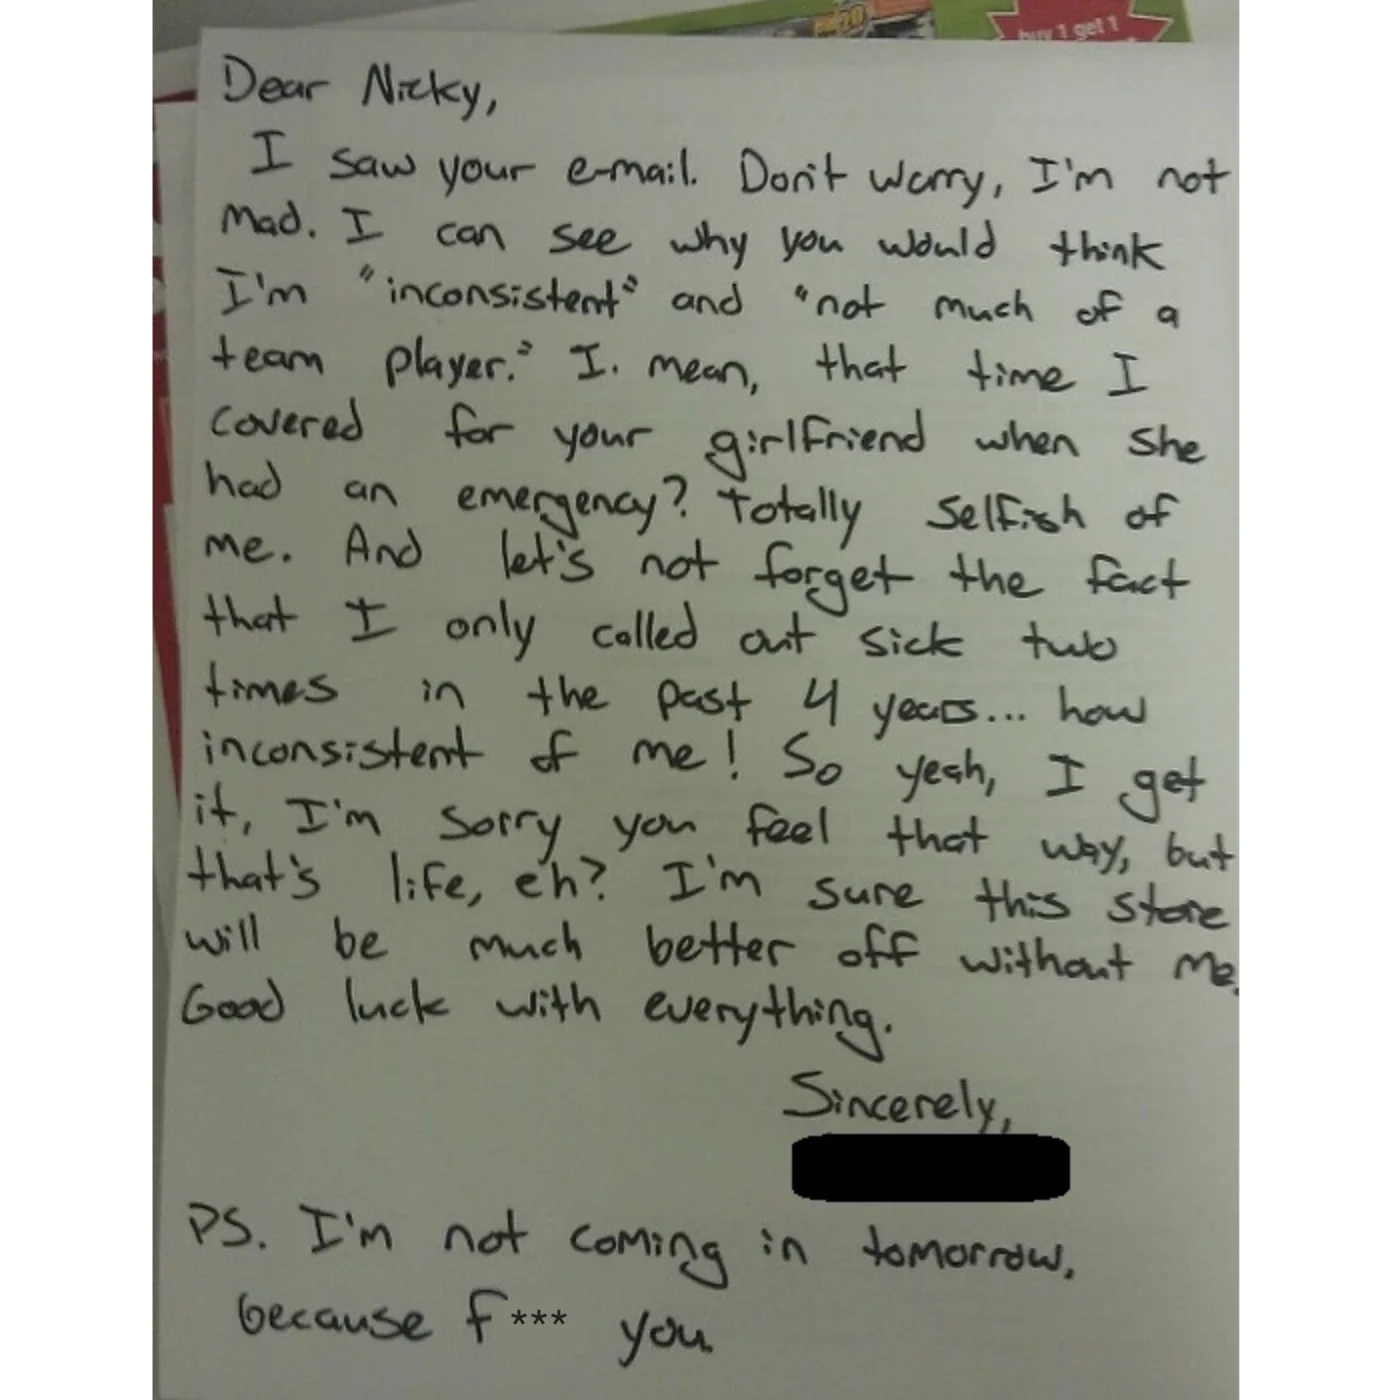 buy 1 get 1
Dear Nicky,
I saw your e-mail. Don't worry, I'm not
mad. I can see why you would think
I'm "inconsistent" and "not much of a
team player." I. mean, that time I
covered for your girlfriend when she
had an emergency? Totally selfish of
me. And let's not forget the fact
that I only called out sick two
times in the past 4 years... how
inconsistent of me! So yeah, I get
it, I'm sorry you feel that way, but
that's life, eh? I'm sure this store
will be much better off without me.
Good luck with everything.
Sincerely,
PS. I'm not coming in tomorrow,
because f*** you.